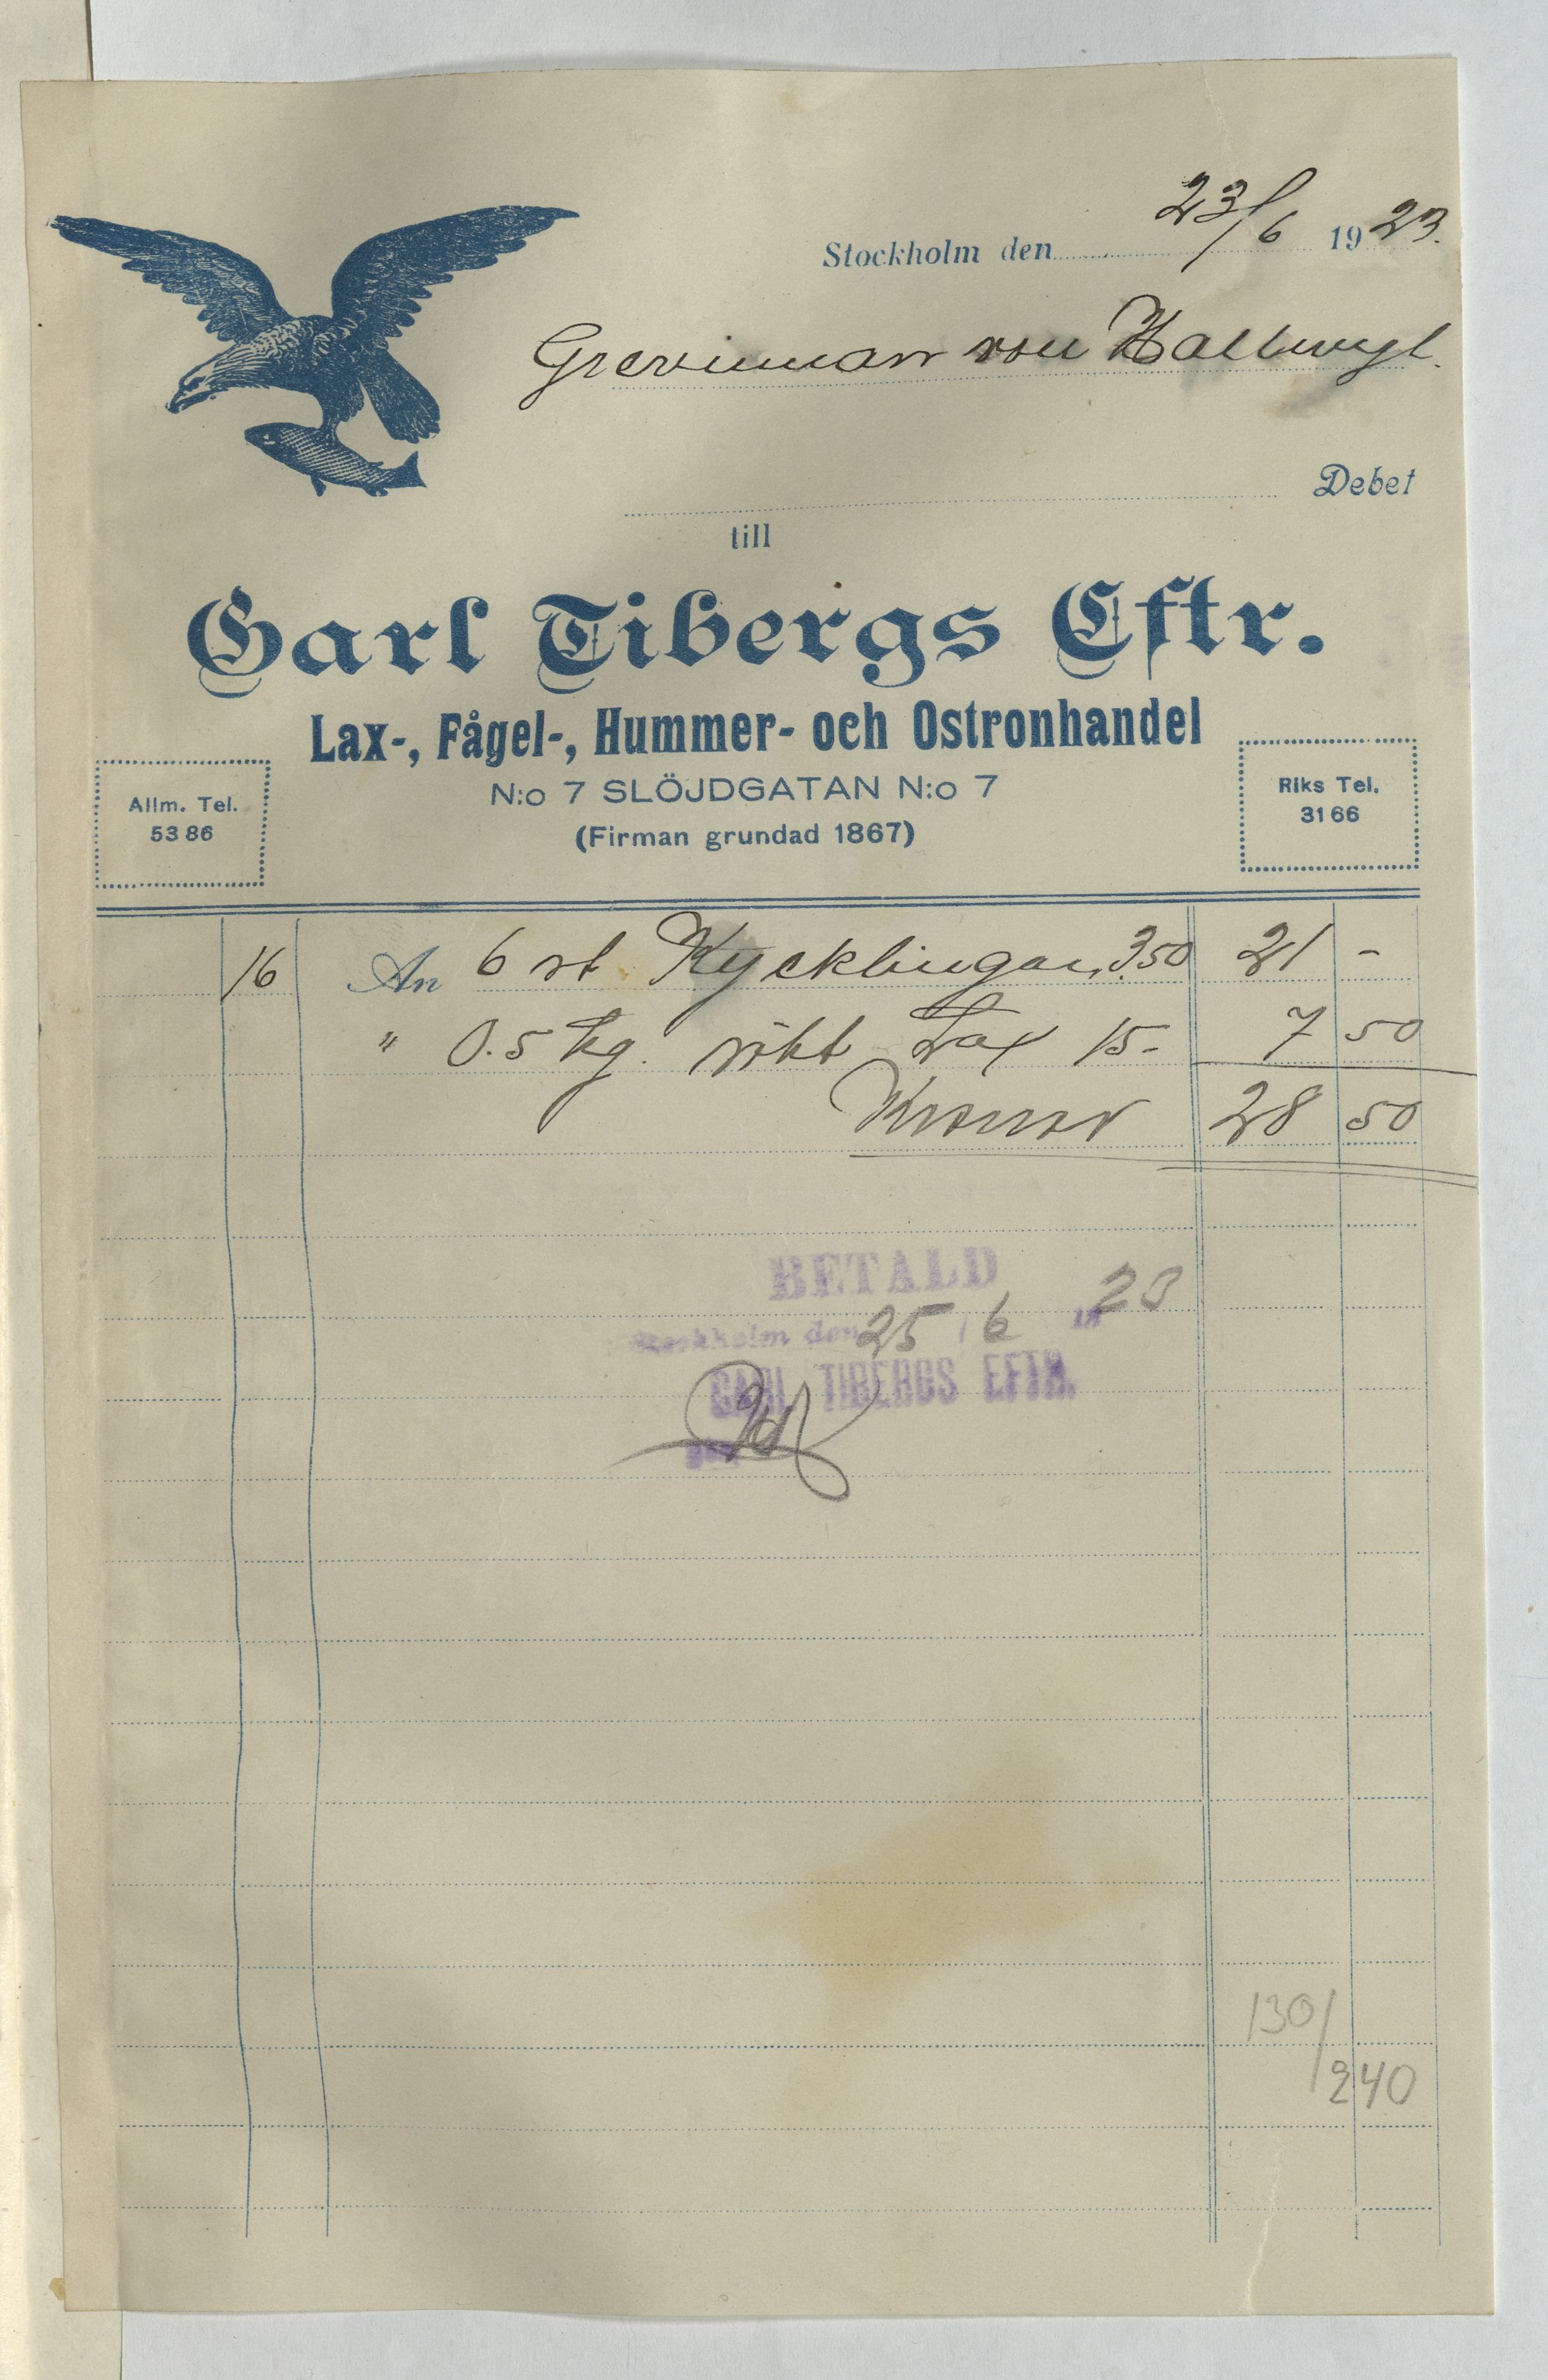 Stockholm den 23/6 1923.
Grevinnan von Hallwyl.
Debet
till
Carl Tibergs Eftr.
Lax-, Fågel-, Hummer- och Ostronhandel
N:o 7 SLÖJDGATAN N:o 7
(Firman grundad 1867)
Allm. Tel.
53 86
Riks Tel.
31 66
16 An 6 st Kycklingar, 3.50 21 -
" 0.5 kg. rökt Lax 15- 7 50
Kronor 28 50
BETALD
Stockholm den 25 / 6 19 23
CARL TIBERGS EFTR.
130/
240